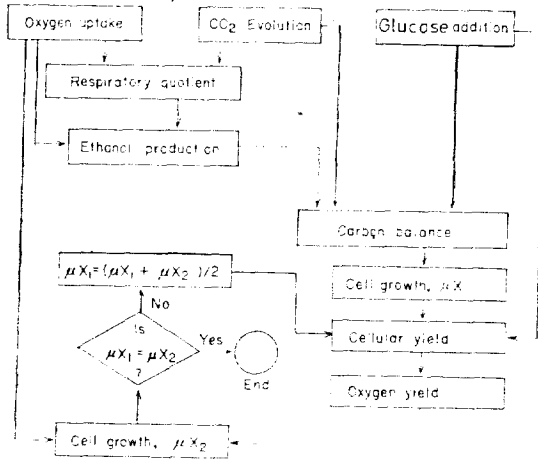 Oxygen uptake
CO2 Evolution
Glucose addition
Respiratory quotient
Ethanol production
Carbon balance
μX1=(μX1 + μX2)/2
Cell growth, μX
No
Is
μX1 = μX2
?
Yes
End
Cellular yield
Oxygen yield
Cell growth, μX2